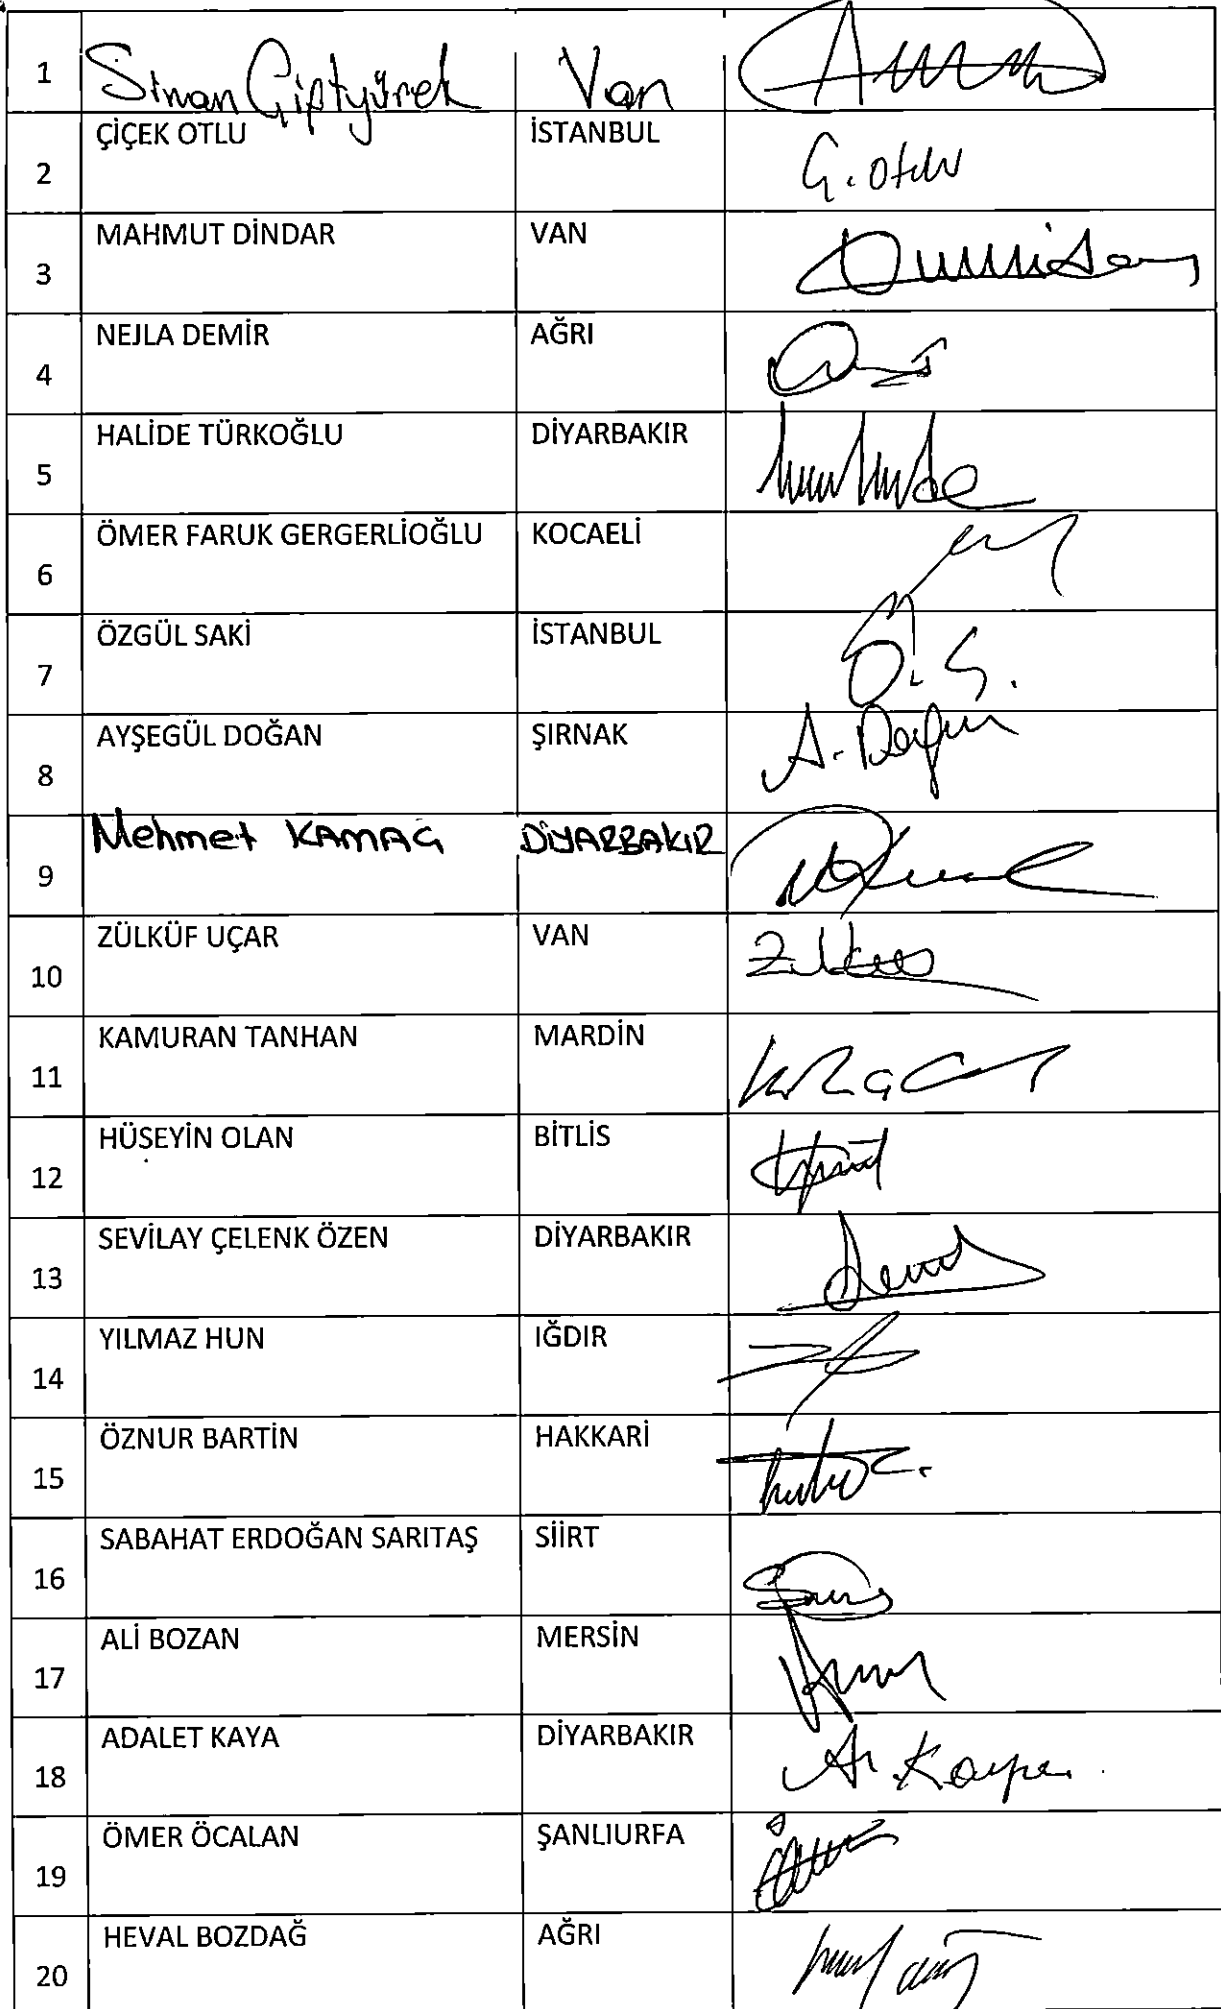 1 Sinan Çiftyürek Van
ÇİÇEK OTLU İSTANBUL
2 Ç. Otlu
MAHMUT DİNDAR VAN
3
NEJLA DEMİR AĞRI
4
HALİDE TÜRKOĞLU DİYARBAKIR
5
ÖMER FARUK GERGERLİOĞLU KOCAELİ
6
ÖZGÜL SAKİ İSTANBUL
7 Ö. S.
AYŞEGÜL DOĞAN ŞIRNAK
8 A. Doğan
Mehmet KAMAÇ DİYARBAKIR
9
ZÜLKÜF UÇAR VAN
10
KAMURAN TANHAN MARDİN
11
HÜSEYİN OLAN BİTLİS
12
SEVİLAY ÇELENK ÖZEN DİYARBAKIR
13
YILMAZ HUN IĞDIR
14
ÖZNUR BARTİN HAKKARİ
15
SABAHAT ERDOĞAN SARITAŞ SİİRT
16
ALİ BOZAN MERSİN
17
ADALET KAYA DİYARBAKIR
18 A. Kaya
ÖMER ÖCALAN ŞANLIURFA
19
HEVAL BOZDAĞ AĞRI
20